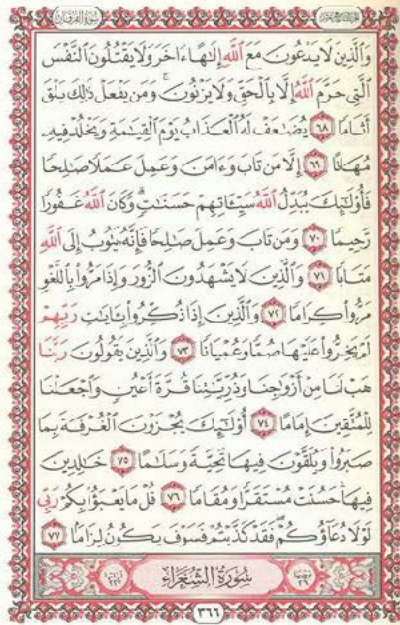 سورة الفرقان
وَٱلَّذِينَ لَا يَدْعُونَ مَعَ ٱللَّهِ إِلَٰهًا ءَاخَرَ وَلَا يَقْتُلُونَ ٱلنَّفْسَ
ٱلَّتِي حَرَّمَ ٱللَّهُ إِلَّا بِٱلْحَقِّ وَلَا يَزْنُونَ ۚ وَمَن يَفْعَلْ ذَٰلِكَ يَلْقَ
أَثَامًا ٦٨ يُضَٰعَفْ لَهُ ٱلْعَذَابُ يَوْمَ ٱلْقِيَٰمَةِ وَيَخْلُدْ فِيهِۦ
مُهَانًا ٦٩ إِلَّا مَن تَابَ وَءَامَنَ وَعَمِلَ عَمَلًا صَٰلِحًا
فَأُو۟لَٰٓئِكَ يُبَدِّلُ ٱللَّهُ سَيِّـَٔاتِهِمْ حَسَنَٰتٍ ۗ وَكَانَ ٱللَّهُ غَفُورًا
رَّحِيمًا ٧٠ وَمَن تَابَ وَعَمِلَ صَٰلِحًا فَإِنَّهُۥ يَتُوبُ إِلَى ٱللَّهِ
مَتَابًا ٧١ وَٱلَّذِينَ لَا يَشْهَدُونَ ٱلزُّورَ وَإِذَا مَرُّوا۟ بِٱللَّغْوِ
مَرُّوا۟ كِرَامًا ٧٢ وَٱلَّذِينَ إِذَا ذُكِّرُوا۟ بِـَٔايَٰتِ رَبِّهِمْ
لَمْ يَخِرُّوا۟ عَلَيْهَا صُمًّا وَعُمْيَانًا ٧٣ وَٱلَّذِينَ يَقُولُونَ رَبَّنَا
هَبْ لَنَا مِنْ أَزْوَٰجِنَا وَذُرِّيَّٰتِنَا قُرَّةَ أَعْيُنٍ وَٱجْعَلْنَا
لِلْمُتَّقِينَ إِمَامًا ٧٤ أُو۟لَٰٓئِكَ يُجْزَوْنَ ٱلْغُرْفَةَ بِمَا
صَبَرُوا۟ وَيُلَقَّوْنَ فِيهَا تَحِيَّةً وَسَلَٰمًا ٧٥ خَٰلِدِينَ
فِيهَا ۚ حَسُنَتْ مُسْتَقَرًّا وَمُقَامًا ٧٦ قُلْ مَا يَعْبَؤُا۟ بِكُمْ رَبِّي
لَوْلَا دُعَآؤُكُمْ ۖ فَقَدْ كَذَّبْتُمْ فَسَوْفَ يَكُونُ لِزَامًا ٧٧
سورة الشعراء
٣٦٦